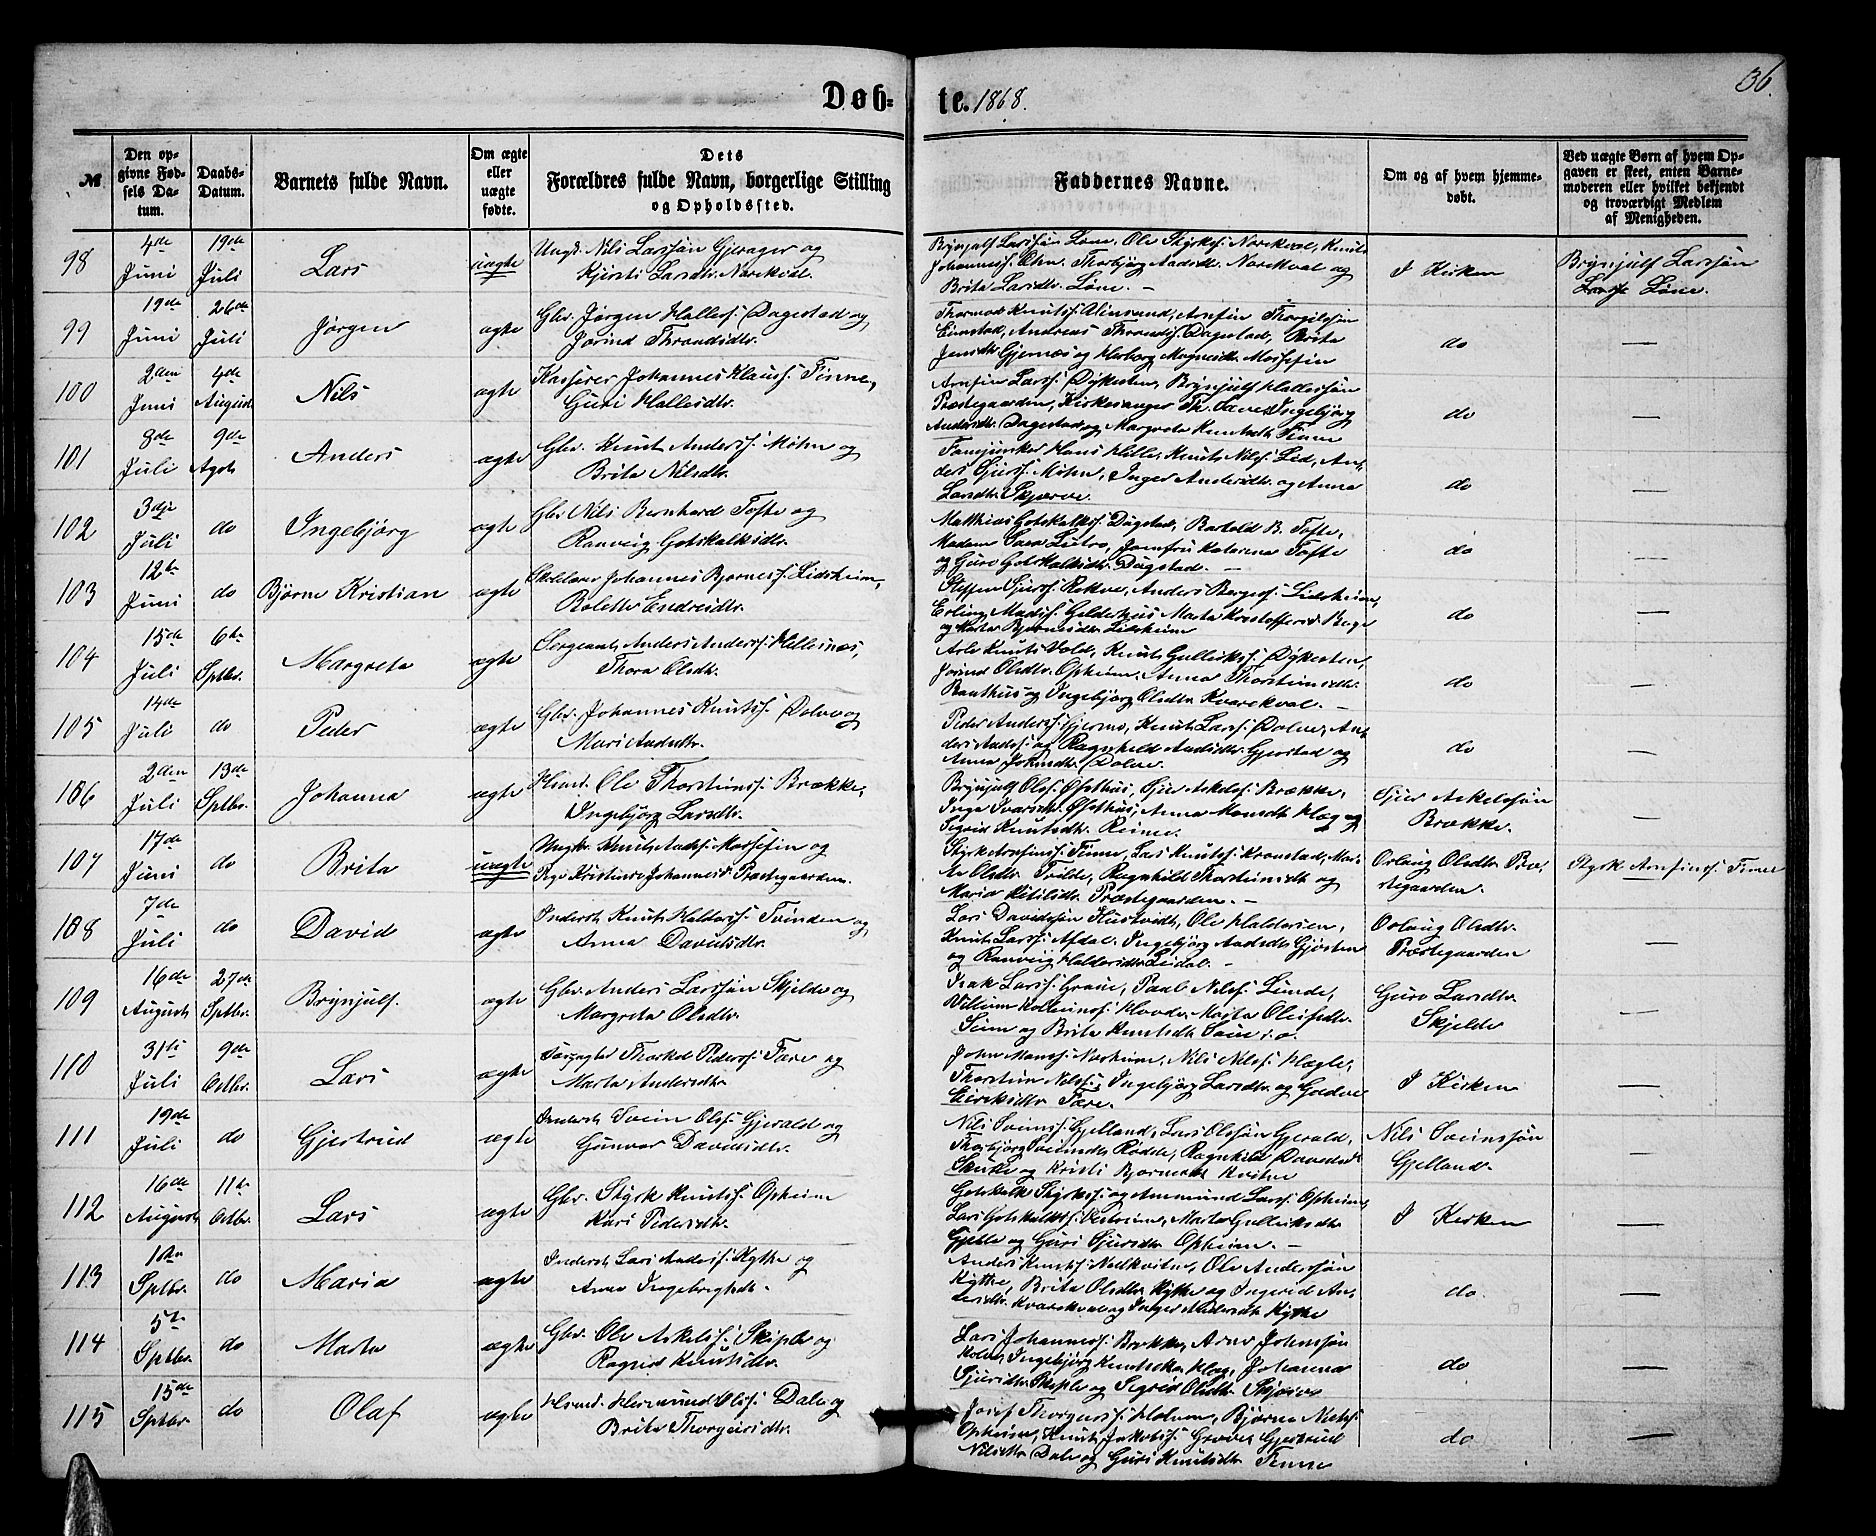 Døb-
te. 1868.
36.
№
Den op-
givne Fød-
sels Da-
tum.
Daabs-
Datum.
Barnets fulde Navn.
Om ægte
eller
uægte
fødte.
Dets
Forældres fulde Navn, borgerlige Stilling
og Opholdssted.
Faddernes Navne.
Om og af hvem hjemme-
døbt.
Ved uægte Børn af hvem Op-
gaven er skeet, enten Barne-
moderen eller hvilket bekjendt
og troværdigt Medlem
af Menigheden.
98
4de
Juni
19de
Juli
Lars
uægte
Ungk. Nils Larssøn Gjerager og
Kjersti Larsdtr. Norekval.
Brynjulf Larssøn Løne, Ole Styrks. Norekval, Knut
Johanness. Thorbjørg Aadsdtr. Norekval og
Brita Larsdtr. Løne. –
I Kirken
Brynjulf Larssøn
Løne.
99
19de
Juni
26de
Juli
Jørgen
ægte
Gbr. Jørgen Halless. Dagestad og
Jorind Throndsdtr.
Thormod Knuts. Arnfin Thorgilssøn
Andreas Thronds. Dagestad, Brita
Jensdtr. Gjernæs og Herborg Magnesdtr. Mossefin
do
—
100
2den
Juni
4de
August
Nils
ægte
Kasserer Johannes Klaus. Finne,
Guri Hallesdtr.
Arnfin Larss. Dykesten, Brynjulf Hallessøn
Præstegaarden, Kirkesanger Th. Save, Ingebjørg
Andersdtr. Dagestad og Margreta Knutsdtr. Finne
do
—
101
8de
Juli
9de
Agst.
Anders
ægte
Gbr. Knut Anderss. Møhn og
Brita Nilsdtr.
Fanejunker Hans Hille, Knut Nilss. Lid, An-
ders Sjurs. Møhn, Inger Andersdtr. og Anna
Larsdtr. Skjerve.
do
—
102
3dje
Juli
do
Ingebjørg
ægte
Gbr. Nils Bernhard Tofte og
Ranveig Gotskalksdtr.
Matthias Gotskalkss. Dagestad, Bartold B. Tofte,
Madam Sara Lutro, Jomfru Katarina Tofte
og Guro Gotskalksdtr. Dagstad. –
do
—
103
12te
Juni
do
Bjørne Kristian
ægte
Skolelærer Johannes Bjørness. Lidsheim,
Bolette Endresdtr.
Steffen Sjurs. Rokne, Anders Børges. Lidsheim,
Erling Madss. Gelderhus, Marta Kristoffersd. Berge
og Marta Bjørnesdtr. Lidsheim
do
—
104
15de
Juli
6te
Septbr.
Margreta
ægte
Sergeant Anders Anderss. Hellesnes,
Thora Olsdtr.
Arle Knuts. Vold, Knut Gulleikss. Dykesten,
Jorind Olsdtr. Opheim, Anna Thorsteinsdtr.
og Ingebjørg Olsdtr. Kvarekval. –
do
—
105
14de
Juli
do
Peder
ægte
Gbr. Johannes Knuts. Dolve og
Mari Andsdtr.
Peder Anderss. Gjerme, Knut Larss. Dolve, An-
ders Aadss. og Ragnhild Aadsdtr. Gjerstad og
Anna Johnsdtr. Dolve.
do
—
106
2den
Juli
13de
Septbr.
Johanna
ægte
Husmd. Ole Thorsteinss. Brække,
Ingebjørg Larsdtr.
Brynjulf Olss. Øfsthus, Sjur Askels. Brække,
Inga Ivarsdtr. Øfsthus, Anna Monsdtr. Kløg og
Sigrid Knutsdtr. Reime.
Sjur Askelssøn
Brække.
—
107
17de
Juni
do
Brita
uægte
Ungkr. Knut Aadss. Mossefin og
Pige Kristine Johannesd. Præstegaarden.
Styrk Arnfinss. Finne, Lars Knuts. Kronstad, Mar-
ta Olsdtr. Tvilde, Ragnhild Thorsteinsdtr. og
Maria Ketilsdtr. Præstegaarden. –
Orlaug Olsdtr. Præ-
stegaarden.
Styrk Arnfinss. Finne
108
7de
Juli
do
David
ægte
Inderst Knut Haldorss. Tvinden og
Anna Davidsdtr.
Lars Davidssøn Hustveit, Ole Haldorsen,
Knut Larss. Afdal, Ingebjørg Aadsdtr. Gjøsten
og Ranveig Haldorsdtr. Leidal. –
Orlaug Olsdtr.
Præstegaarden
—
109
16de
August
27de
Septbr.
Brynjulf.
ægte
Gbr. Anders Larssøn Skjelde og
Margreta Olsdtr.
Isak Larss. Graue, Paul Nilss. Lunde,
Villum Kolbeinss. Hovda, Marta Olsdtr.
Seim og Brita Knutsdtr. Saue i. o.
Guro Larsdtr.
Skjelde
—
110
31te
Juli
9de
Octbr.
Lars
ægte
Thorkel Pederss. Fære og
Marta Andersdtr.
John Monss. Norheim, Nils Nilss. Kløgle,
Thorstein Nilss., Ingebjørg Larsdtr. og Gudve
Eiriksdtr. Fære.
I Kirken
—
111
19de
Juli
do
Gjertrud
ægte
Inderst Svein Olss. Gjerald og
Gunvor Davidsdtr.
Nils Sveinss. Gjelland, Lars Olssøn Gjerald,
Thorbjørg Sveinsdtr. Rødde, Ragnhild Davidsd.
og Kristi Bjørnesdtr. Kvitne
Nils Sveinssøn
Gjelland.
—
112
16de
August
11te
Octbr.
Lars
ægte
Gbr. Styrk Knuts. Opheim
Kari Pedersdtr.
Gotskalk Styrkss. og Ammund Larss. Opheim,
Lars Gotskalkss. Vestreim, Marta Gulleiksdtr.
Gjelle og Guri Sjursdtr. Opheim. –
I Kirken
—
113
1ste
Septbr.
do
Maria
ægte
Inderst Lars Anders. Kytte og
Anna Ingebrigtsdtr.
Anders Knuts. Nedkvitne, Ole Anderssøn
Kytte, Brita Olsdtr. Kytte og Ingerid An-
dersdtr. Kvarekval og Inger Andersdtr. Kytte
do.
—
114
5te
Septbr.
do
Marta
ægte
Gbr. Ole Askels. Skiple og
Ragnid Knutsdtr.
Lars Johanness. Brække, Arne Johnssøn
Ingebjørg Knutsdtr. Kløg, Johanna
Sjursdtr. Skiple og Sigrid Olsdtr. Skjerve
do
—
115
15de
Septbr.
do
Olaf
ægte
Husmd. Hermund Olss. Dale og
Brita Thorgeirsdtr.
Josef Thorgeirss. Holven, Bjørne Nilss.
Opheim, Knut Jakobss. Grove, Gjertrud
Nilsdtr. Dale og Guri Knutsdtr. Finne
do
—